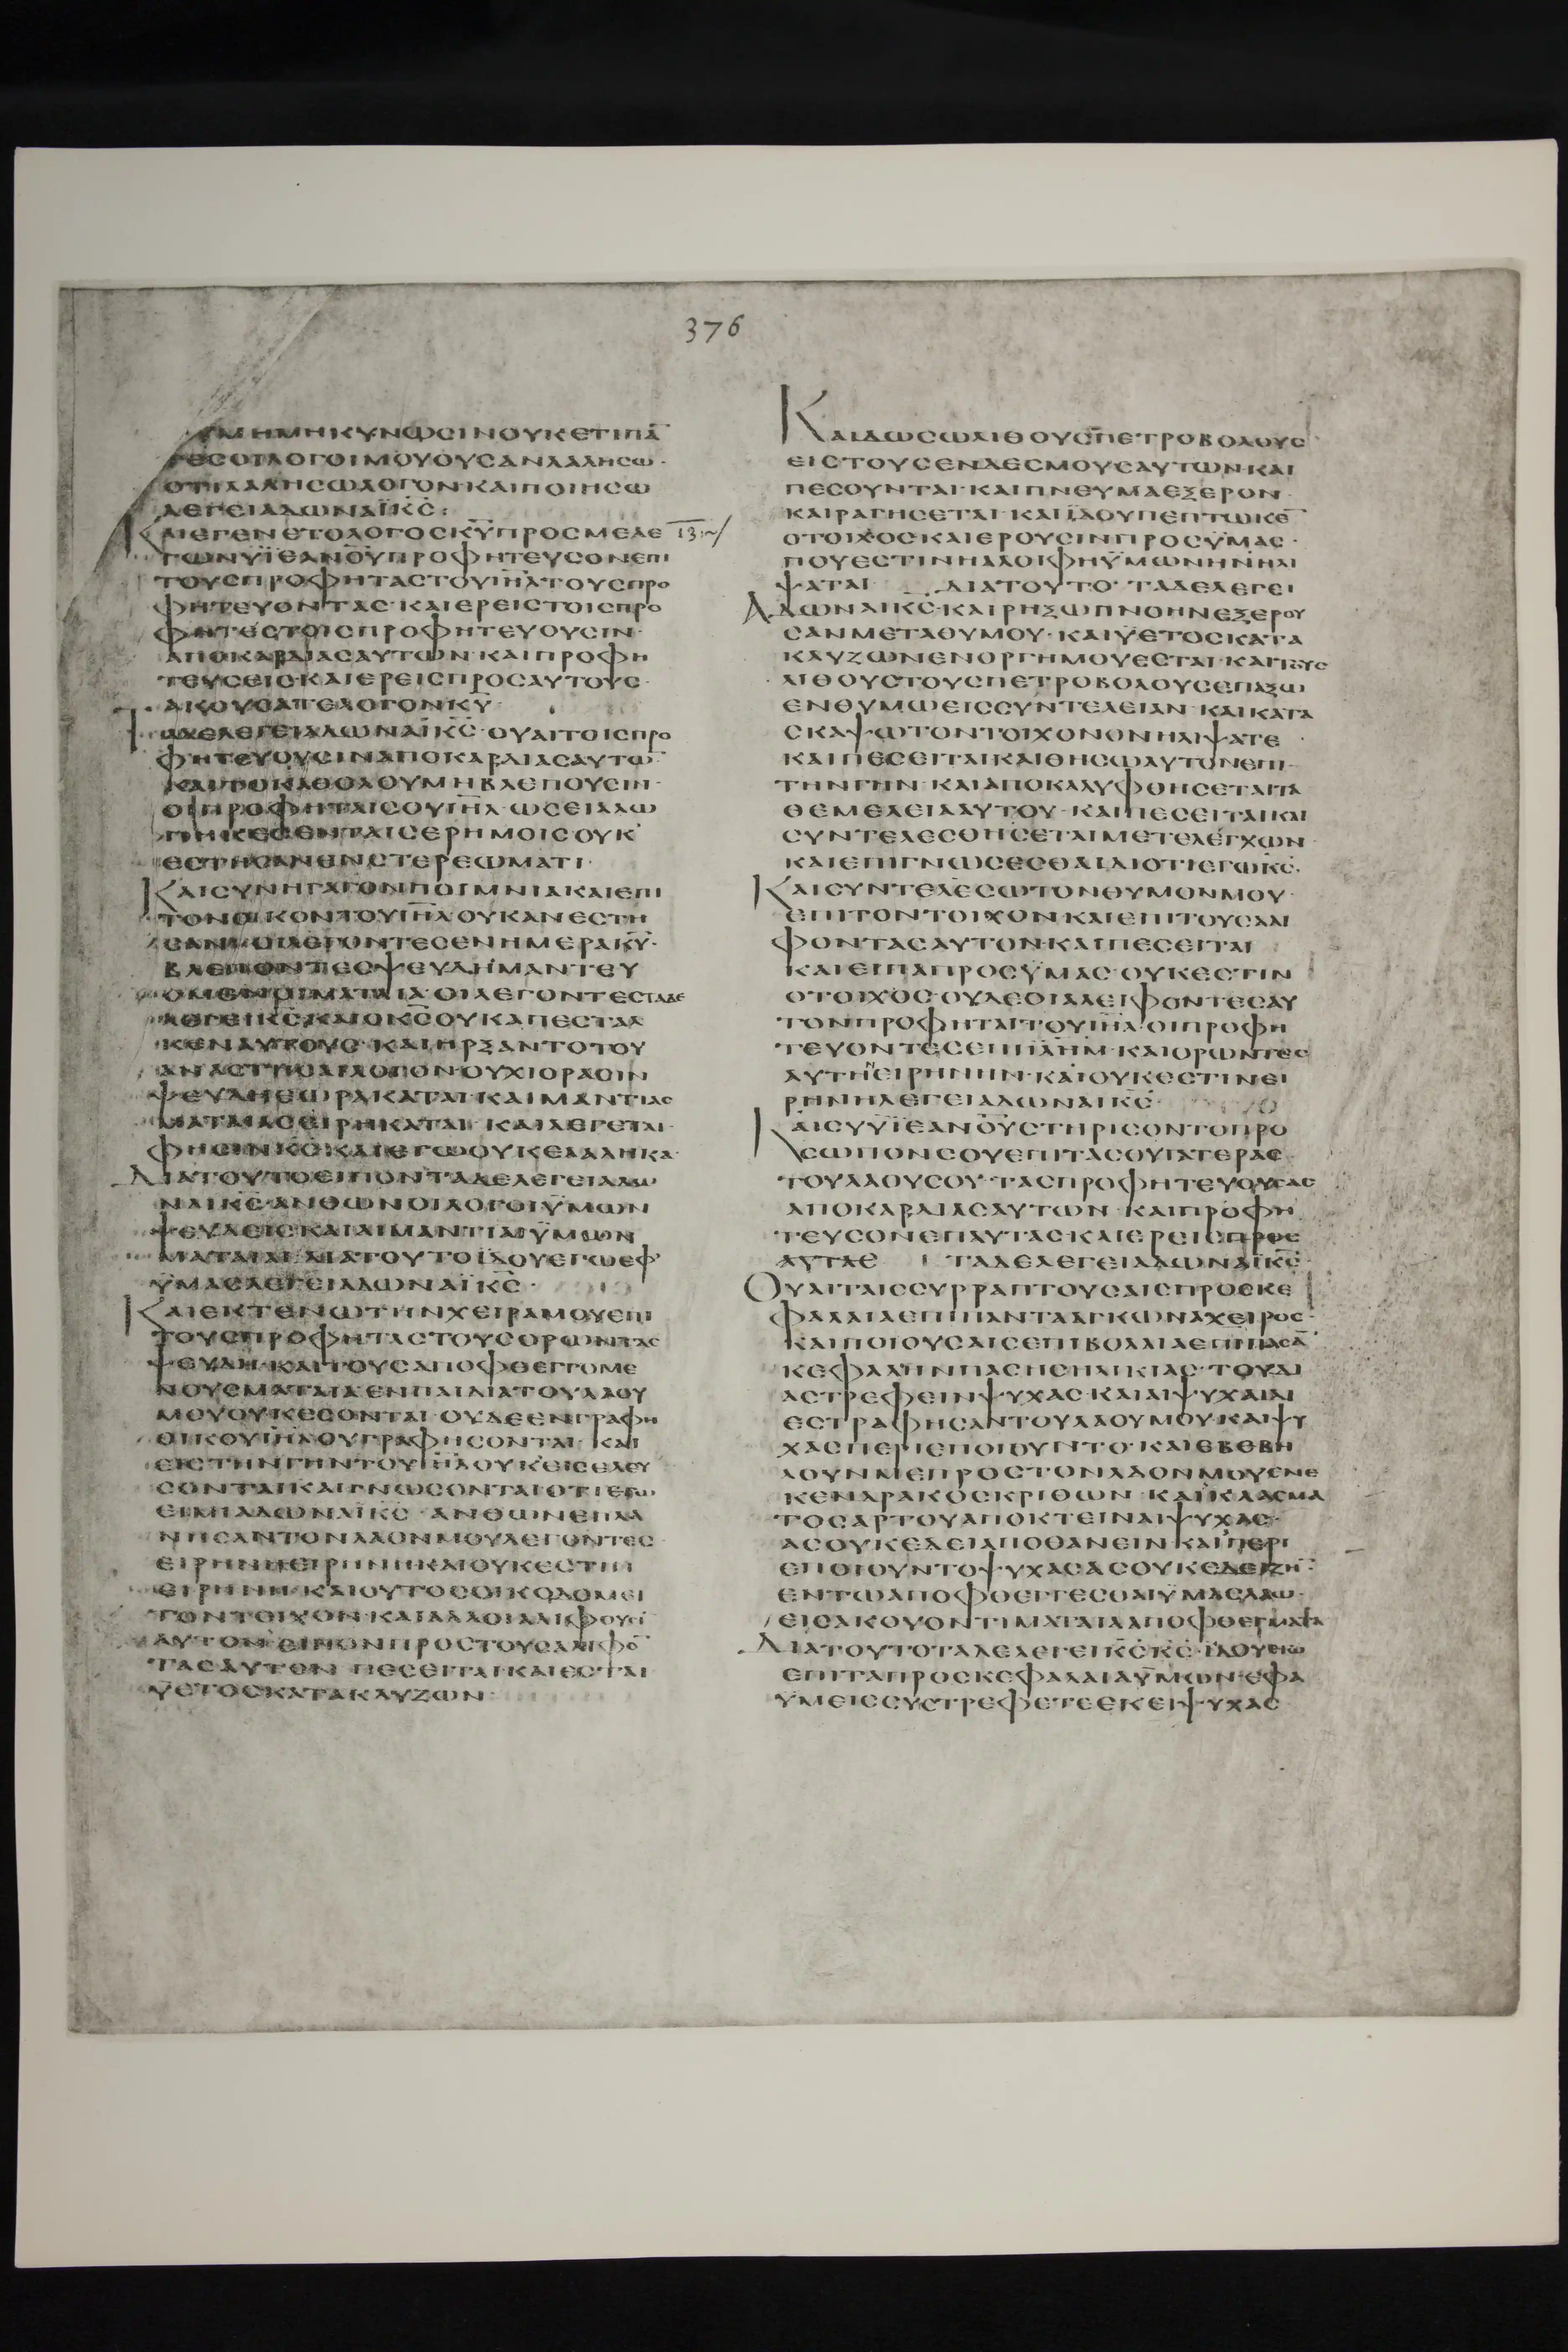 376
ΟΥΜΗΜΗΚΥΝΩCΙΝΟΥΚΕΤΙΠΑ̅
ΤΕCΟΙΛΟΓΟΙΜΟΥΟΥCΑΝΛΑΛΗCΩ·
ΟΤΙΛΑΛΗCΩΛΟΓΟΝ·ΚΑΙΠΟΙΗCΩ
ΛΕΓΕΙΑΔΩΝΑΪΚ̅C̅:
ΚΑΙΕΓΕΝΕΤΟΛΟΓΟCΚ̅Υ̅ΠΡΟCΜΕΛΕ
1̅3̅:~/
ΓΩΝΥΪΕΑΝ̅Ο̅Υ̅ΠΡΟΦΗΤΕΥCΟΝΕΠΙ
ΤΟΥCΠΡΟΦΗΤΑCΤΟΥΙ̅Η̅Λ̅ΤΟΥCΠΡΟ
ΦΗΤΕΥΟΝΤΑC·ΚΑΙΕΡΕΙCΤΟΙCΠΡΟ
ΦΗΤΕCΤΟΙCΠΡΟΦΗΤΕΥΟΥCΙΝ·
ΑΠΟΚΑΡΔΙΑCΑΥΤΩΝ·ΚΑΙΠΡΟΦΗ
ΤΕΥCΕΙC·ΚΑΙΕΡΕΙCΠΡΟCΑΥΤΟΥC·
ΑΚΟΥCΑΤΕΛΟΓΟΝΚ̅Υ̅·
ΤΑΔΕΛΕΓΕΙΑΔΩΝΑΪΚ̅C̅·ΟΥΑΙΤΟΙCΠΡΟ
ΦΗΤΕΥΟΥCΙΝΑΠΟΚΑΡΔΙΑCΑΥΤΩ̅
ΚΑΙΤΟΚΑΘΟΛΟΥΜΗΒΛΕΠΟΥCΙΝ·
ΟΙΠΡΟΦΗΤΑΙCΟΥΙ̅Η̅Λ̅·ΩCΕΙΑΛΩ
ΠΗΚΕC ΕΝΤΑΙCΕΡΗΜΟΙCΟΥΚ
ΕCΤΗCΑΝΕΝCΤΕΡΕΩΜΑΤΙ·
ΚΑΙCΥΝΗΓΑΓΟΝΠΟΙΜΝΙΑΚΑΙΕΠΙ
ΤΟΝΟΙΚΟΝΤΟΥΙ̅Η̅Λ̅ΟΥΚΑΝΕCΤΗ
CΑΝ·ΟΙΛΕΓΟΝΤΕCΕΝΗΜΕΡΑΚ̅Υ̅·
ΒΛΕΠΟΝΤΕCΨΕΥΔΗ·ΜΑΝΤΕΥ
ΟΜΕΝΟΙΜΑΤΑΙΑ·ΟΙΛΕΓΟΝΤΕCΤΑΔΕ
ΛΕΓΕΙΚ̅C̅·ΚΑΙΟΚ̅C̅ΟΥΚΑΠΕCΤΑΛ
ΚΕΝΑΥΤΟΥC·ΚΑΙΗΡΞΑΝΤΟΤΟΥ
ΑΝΑCΤΗCΑΙΛΟΓΟΝ·ΟΥΧΙΟΡΑCΙΝ
ΨΕΥΔΗΕΩΡΑΚΑΤΑΙ·ΚΑΙΜΑΝΤΙΑC
ΜΑΤΑΙΑCΕΙΡΗΚΑΤΑΙ·ΚΑΙΛΕΓΕΤΑΙ·
ΦΗCΙΝΚ̅C̅·ΚΑΙΕΓΩΟΥΚΕΛΑΛΗΚΑ·
ΔΙΑΤΟΥΤΟΕΙΠΟΝΤΑΔΕΛΕΓΕΙΑΔΩ
ΝΑΙΚ̅C̅·ΑΝΘΩΝΟΙΛΟΓΟΙΫΜΩΝ
ΨΕΥΔΕΙC·ΚΑΙΑΙΜΑΝΤΙΑΙΫΜΩΝ
ΜΑΤΑΙΑΙ·ΔΙΑΤΟΥΤΟΪΔΟΥΕΓΩΕΦ
ΥΜΑCΛΕΓΕΙΑΔΩΝΑΪΚ̅C̅·
ΚΑΙΕΚΤΕΝΩΤΗΝΧΕΙΡΑΜΟΥΕΠΙ
ΤΟΥCΠΡΟΦΗΤΑCΤΟΥCΟΡΩΝΤΑC
ΨΕΥΔΗ·ΚΑΙΤΟΥCΑΠΟΦΘΕΓΓΟΜΕ
ΝΟΥCΜΑΤΑΙΑ·ΕΝΠΑΙΔΙΑΤΟΥΛΑΟΥ
ΜΟΥΟΥΚΕCΟΝΤΑΙ·ΟΥΔΕΕΝΓΡΑΦΗ
ΟΙΚΟΥΙ̅Η̅Λ̅ΟΥΓΡΑΦΗCΟΝΤΑΙ·ΚΑΙ
ΕΙCΤΗΝΓΗΝΤΟΥΙ̅Η̅Λ̅ΟΥΚΕΙCΕΛΕΥ
CΟΝΤΑΙ·ΚΑΙΓΝΩCΟΝΤΑΙΟΤΙΕΓΩ
ΕΙΜΙΑΔΩΝΑΪΚ̅C̅·ΑΝΘΩΝΕΠΛΑ
ΝΗCΑΝΤΟΝΛΑΟΝΜΟΥΛΕΓΟΝΤΕC·
ΕΙΡΗΝΗΕΙΡΗΝΗ·ΚΑΙΟΥΚΕCΤΙΝ
ΕΙΡΗΝΗ·ΚΑΙΟΥΤΟCΟΙΚΟΔΟΜΕΙ
ΤΟΝΤΟΙΧΟΝ·ΚΑΙΑΛΛΟΙΑΛΙΦΟΥCΙ
ΑΥΤΟΝ·ΕΙΠΟΝΠΡΟCΤΟΥCΑΛΙΦΟ̅
ΤΑCΑΥΤΟΝ ΠΕCΕΙΤΑΙ·ΚΑΙΕCΤΑΙ
ΫΕΤΟCΚΑΤΑΚΛΥΖΩΝ·
ΚΑΙΔΩCΩΛΙΘΟΥCΠΕΤΡΟΒΟΛΟΥC
ΕΙCΤΟΥCΕΝΔΕCΜΟΥCΑΥΤΩΝ·ΚΑΙ
ΠΕCΟΥΝΤΑΙ·ΚΑΙΠΝΕΥΜΑΕΞΕΡΟΝ·
ΚΑΙΡΑΓΗCΕΤΑΙ·ΚΑΙΪΔΟΥΠΕΠΤΩΚΕ̅
ΟΤΟΙΧΟC·ΚΑΙΕΡΟΥCΙΝΠΡΟCΫΜΑC·
ΠΟΥΕCΤΙΝΗΑΛΟΙΦΗΫΜΩΝΗΝΗΛΙ
ΨΑΤΑΙ ΔΙΑΤΟΥΤΟ·ΤΑΔΕΛΕΓΕΙ
ΑΔΩΝΑΙΚ̅C̅·ΚΑΙΡΗΞΩΠΝΟΗΝΕΞΕΡΟΥ
CΑΝΜΕΤΑΘΥΜΟΥ·ΚΑΙΫΕΤΟCΚΑΤΑ
ΚΛΥΖΩΝΕΝΟΡΓΗΜΟΥΕCΤΑΙ·ΚΑΙΤΟΥC
ΛΙΘΟΥCΤΟΥCΠΕΤΡΟΒΟΛΟΥCΕΠΑΞΩ
ΕΝΘΥΜΩΕΙCCΥΝΤΕΛΕΙΑΝ·ΚΑΙΚΑΤΑ
CΚΑΨΩΤΟΝΤΟΙΧΟΝΟΝΗΛΙΨΑΤΕ·
ΚΑΙΠΕCΕΙΤΑΙ·ΚΑΙΘΗCΩΑΥΤΟΝΕΠΙ
ΤΗΝΓΗΝ·ΚΑΙΑΠΟΚΑΛΥΦΘΗCΕΤΑΙΤΑ
ΘΕΜΕΛΕΙΑΑΥΤΟΥ·ΚΑΙΠΕCΕΙΤΑΙΚΑΙ
CΥΝΤΕΛΕCΘΗCΕΤΑΙΜΕΤΕΛΕΓΧΩΝ·
ΚΑΙΕΠΙΓΝΩCΕCΘΑΙΔΙΟΤΙΕΓΩΚ̅C̅·
ΚΑΙCΥΝΤΕΛΕCΩΤΟΝΘΥΜΟΝΜΟΥ·
ΕΠΙΤΟΝΤΟΙΧΟΝ·ΚΑΙΕΠΙΤΟΥCΑΛΙ
ΦΟΝΤΑCΑΥΤΟΝ·ΚΑΙΠΕCΕΙΤΑΙ
ΚΑΙΕΙΠΑΠΡΟCΫΜΑC·ΟΥΚΕCΤΙΝ
ΟΤΟΙΧΟC·ΟΥΔΕΟΙΑΛΕΙΦΟΝΤΕCΑΥ
ΤΟΝΠΡΟΦΗΤΑΙΤΟΥΙ̅Η̅Λ̅·ΟΙΠΡΟΦΗ
ΤΕΥΟΝΤΕCΕΠΙΙ̅Λ̅Η̅Μ̅·ΚΑΙΟΡΩΝΤΕC
ΑΥΤΗΕΙΡΗΝΗΝ·ΚΑΙΟΥΚΕCΤΙΝΕΙ
ΡΗΝΗΛΕΓΕΙΑΔΩΝΑΙΚ̅C̅·
ΚΑΙCΥΥΪΕΑΝ̅Ο̅Υ̅CΤΗΡΙCΟΝΤΟΠΡΟ
CΩΠΟΝCΟΥΕΠΙΤΑCΘΥΓΑΤΕΡΑC
ΤΟΥΛΑΟΥCΟΥ·ΤΑCΠΡΟΦΗΤΕΥΟΥCΑC
ΑΠΟΚΑΡΔΙΑCΑΥΤΩΝ·ΚΑΙΠΡΟΦΗ
ΤΕΥCΟΝΕΠΑΥΤΑC·ΚΑΙΕΡΕΙCΠΡΟC
ΑΥΤΑC ΤΑΔΕΛΕΓΕΙΑΔΩΝΑΪΚ̅C̅·
ΟΥΑΙΤΑΙCCΥΡΡΑΠΤΟΥCΑΙCΠΡΟCΚΕ
ΦΑΛΑΙΑΕΠΙΠΑΝΤΑΑΓΚΩΝΑΧΕΙΡΟC·
ΚΑΙΠΟΙΟΥCΑΙCΕΠΙΒΟΛΑΙΑΕΠΙΠΑCΑ̅
ΚΕΦΑΛΗΝΠΑCΗCΗΛΙΚΙΑC·ΤΟΥΔΙ
ΑCΤΡΕΦΕΙΝΨΥΧΑC·ΚΑΙΑΙΨΥΧΑΙΔΙ
ΕCΤΡΑΦΗCΑΝΤΟΥΛΑΟΥΜΟΥ·ΚΑΙΨΥ
ΧΑCΠΕΡΙΕΠΟΙΟΥΝΤΟ·ΚΑΙΕΒΕΒΗ
ΛΟΥΝΜΕΠΡΟCΤΟΝΛΑΟΝΜΟΥΕΝΕ
ΚΕΝΔΡΑΚΟCΚΡΙΘΩΝ·ΚΑΙΚΛΑCΜΑ
ΤΟCΑΡΤΟΥΑΠΟΚΤΕΙΝΑΙΨΥΧΑC·
ΑCΟΥΚΕΔΕΙΑΠΟΘΑΝΕΙΝ·ΚΑΙΠΕΡΙ
ΕΠΟΙΟΥΝΤΟΨΥΧΑCΑCΟΥΚΕΔΕΙΖΗ̅·
ΕΝΤΩΑΠΟΦΘΕΓΓΕCΘΑΙΫΜΑCΛΑΩ·
ΕΙCΑΚΟΥΟΝΤΙΜΑΤΑΙΑΑΠΟΦΘΕΓΜΑΤΑ
ΔΙΑΤΟΥΤΟΤΑΔΕΛΕΓΕΙΚ̅C̅Κ̅C̅·ΪΔΟΥΕΓΩ
ΕΠΙΤΑΠΡΟCΚΕΦΑΛΑΙΑΫΜΩΝ·ΕΦΑ
ΥΜΕΙCCΥCΤΡΕΦΕΤΕΕΚΕΙΨΥΧΑC